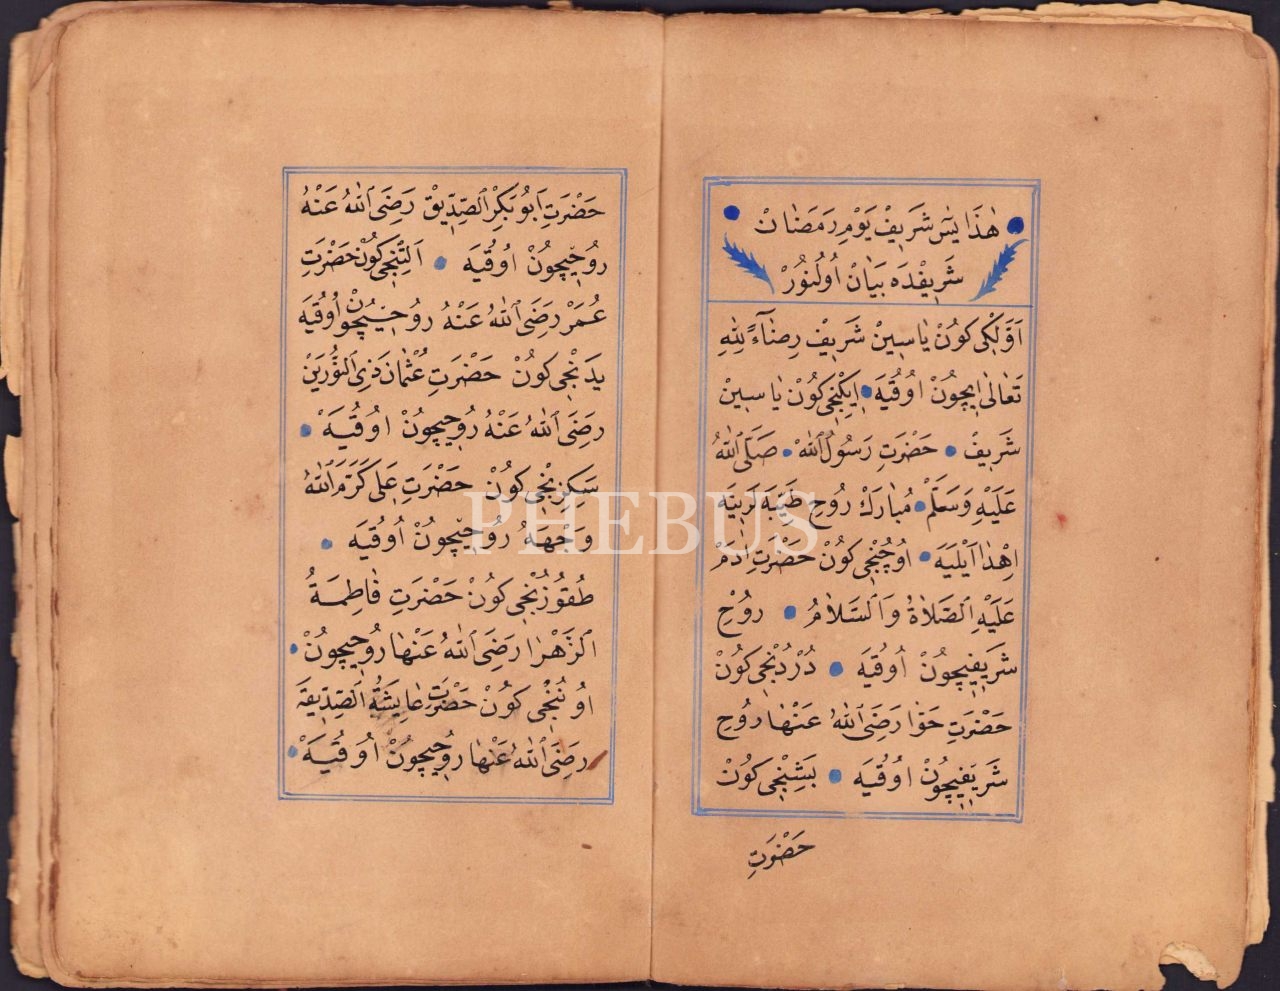 هٰذَا يٰسٓ شَرِيفْ يَوْمِ رَمَضَانْ
شَرِيفْدَه بَيَانْ اُولُنُورْ
اَوَّلْكِى كُونْ يَاسِينْ شَرِيفْ رِضَاءً لِلّٰهِ
تَعَالٰى اِيچُونْ اوُقُيَه اِيكِنْجِى كُونْ يَاسِينْ
شَرِيفْ حَضْرَتِ رَسُولُ اللّٰهْ صَلَّى اللّٰهُ
عَلَيْهِ وَسَلَّمْ مُبَارَكْ رُوحِ طَيِّبَه لَرِينَه
اِهْدَا اَيْلَيَه اوُچُنْجِى كُونْ حَضْرَتِ اٰدَمْ
عَلَيْهِ الصَّلَاةُ وَالسَّلَامُ رُوحْ
شَرِيفِيچُونْ اوُقُيَه دُرْدُنْجِى كُونْ
حَضْرَتِ حَوَّا رَضِىَ اللّٰهُ عَنْهَا رُوحِ
شَرِيفِيچُونْ اوُقُيَه بَشِنْجِى كُونْ
حَضْرَتِ
حَضْرَتِ اَبُو بَكْرِ الصِّدِّيقْ رَضِىَ اللّٰهُ عَنْهُ
رُوحِيچُونْ اوُقُيَه اَلْتِنْجِى كُونْ حَضْرَتِ
عُمَرْ رَضِىَ اللّٰهُ عَنْهُ رُوحِيچُونْ اوُقُيَه
يَدِنْجِى كُونْ حَضْرَتِ عُثْمَانَ ذِى النُّورَيْنْ
رَضِىَ اللّٰهُ عَنْهُ رُوحِيچُونْ اوُقُيَه
سَكِزِنْجِى كُونْ حَضْرَتِ عَلِى كَرَّمَ اللّٰهُ
وَجْهَهُ رُوحِيچُونْ اوُقُيَه
طُقُوزُنْجِى كُونْ حَضْرَتِ فَاطِمَةُ
الزَّهْرَا رَضِىَ اللّٰهُ عَنْهَا رُوحِيچُونْ
اوُنُنْجِى كُونْ حَضْرَتِ عَايِشَةُ الصِّدِّيقَه
رَضِىَ اللّٰهُ عَنْهَا رُوحِيچُونْ اوُقُيَه
PHEBUS